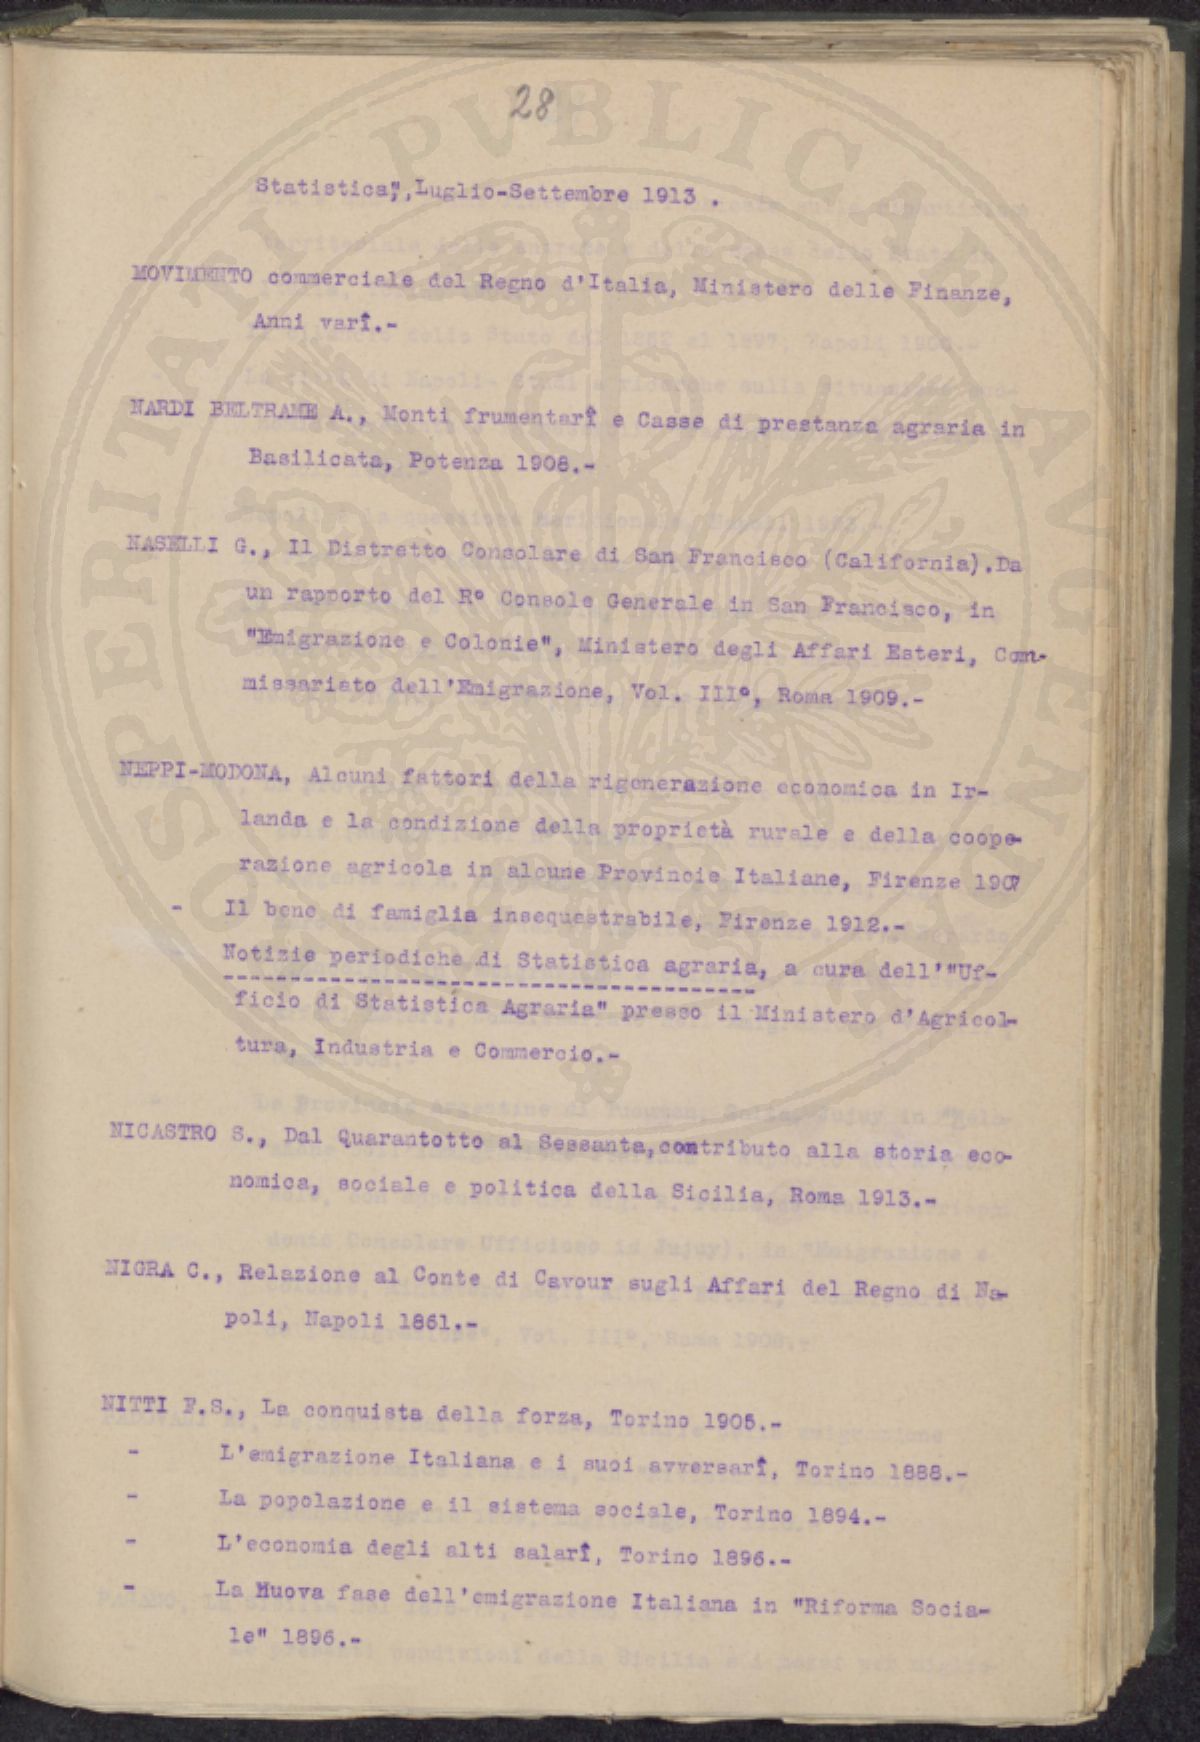 28
Statistica", Luglio-Settembre 1913 .
MOVIMENTO commerciale del Regno d'Italia, Ministero delle Finanze,
Anni varî.-
NARDI BELTRAME A., Monti frumentarî e Casse di prestanza agraria in
Basilicata, Potenza 1908.-
NASELLI G., Il Distretto Consolare di San Francisco (California).Da
un rapporto del R° Console Generale in San Francisco, in
"Emigrazione e Colonie", Ministero degli Affari Esteri, Com-
missariato dell'Emigrazione, Vol. III°, Roma 1909.-
NEPPI-MODONA, Alcuni fattori della rigenerazione economica in Ir-
landa e la condizione della proprietà rurale e della coope-
razione agricola in alcune Provincie Italiane, Firenze 1907
- Il bene di famiglia insequestrabile, Firenze 1912.-
- Notizie periodiche di Statistica agraria, a cura dell'"Uf-
ficio di Statistica Agraria" presso il Ministero d'Agricol-
tura, Industria e Commercio.-
NICASTRO S., Dal Quarantotto al Sessanta,contributo alla storia eco-
nomica, sociale e politica della Sicilia, Roma 1913.-
NIGRA C., Relazione al Conte di Cavour sugli Affari del Regno di Na-
poli, Napoli 1861.-
NITTI F.S., La conquista della forza, Torino 1905.-
- L'emigrazione Italiana e i suoi avversarî, Torino 1888.-
- La popolazione e il sistema sociale, Torino 1894.-
- L'economia degli alti salarî, Torino 1896.-
- La Nuova fase dell'emigrazione Italiana in "Riforma Socia-
le" 1896.-